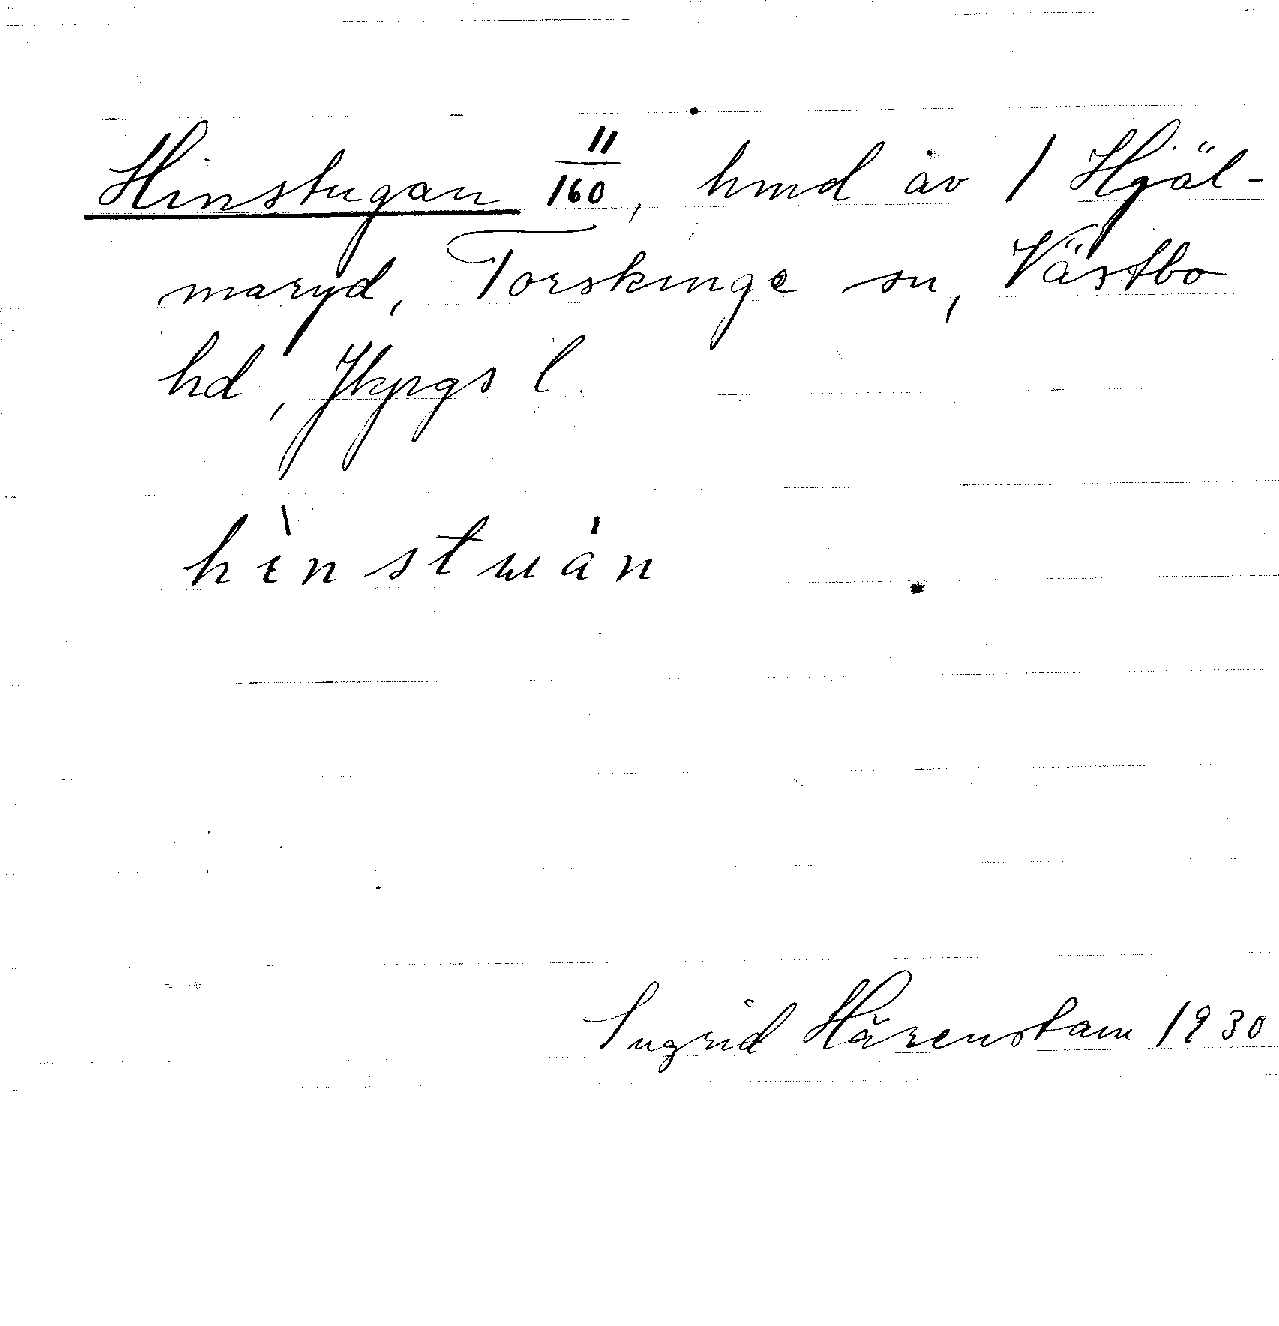 Hinstugan 11/160, hmd av 1 Hjäl-
maryd, Torskinge sn, Västbo
hd, Jkpgs l.
hìnstuán
Ingrid Härenstam 1930